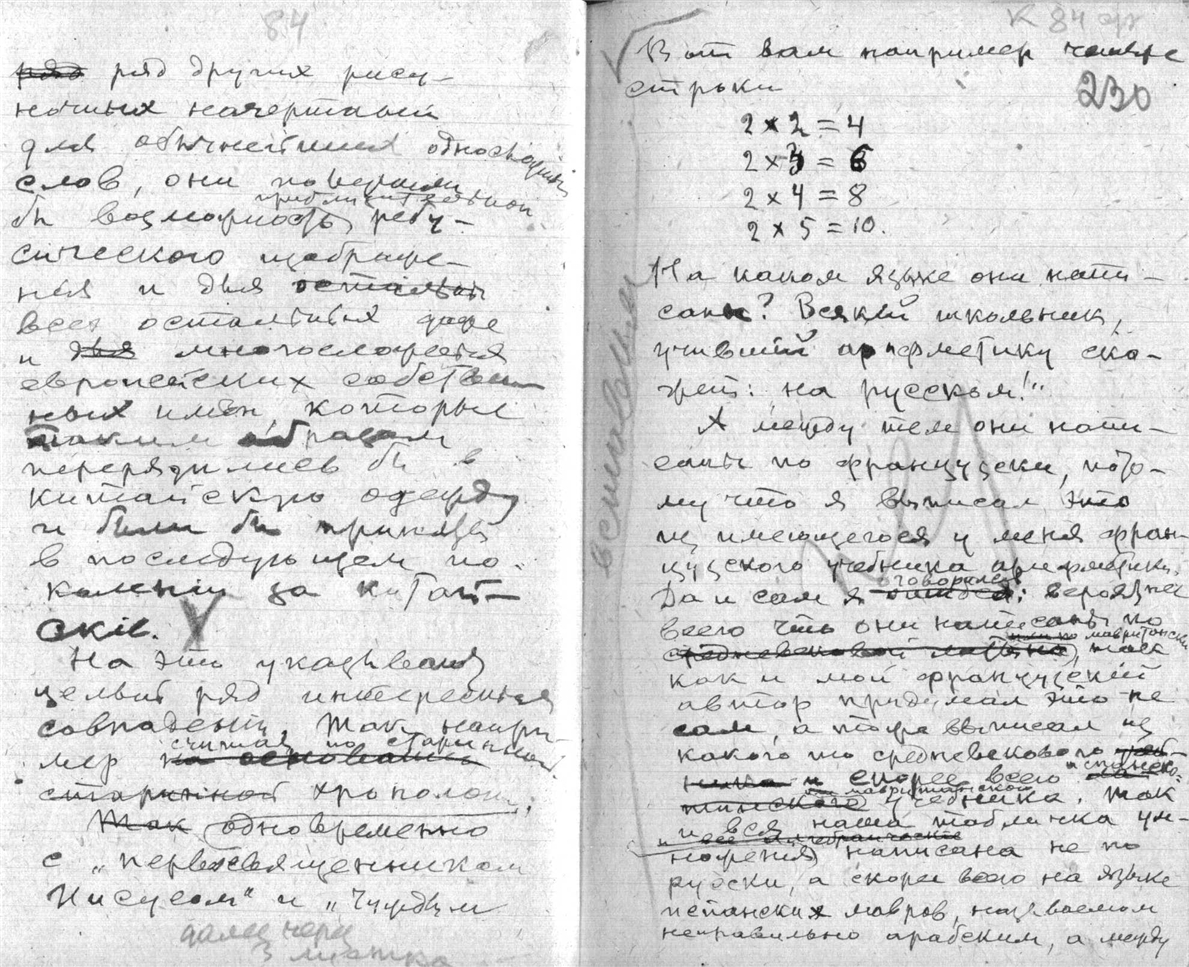 84
ряд ряд других рису-
ночных начертаний
для обычнейших односложных
слов, они
приблизительной
бы возможность ребу-
сического изображе-
ния и для остальных
всех остальных даже
и для многосложных
европейских собствен
ных имен, которые
таким образом
перерядились бы в
китайскую одежду
и были бы приняты
в последующем по-
колении за китай-
ские.
На это указывает
целый ряд интересных
совпадений. Так напри-
мер на основании
считая по старинной
старинной хронологии,
Так одновременно
с „первосвященником
Иисусом" и „Чудым
далее через
3 листка
К 84 стр
230
Вот вам например четыре
строки
2 × 2 = 4
2 × 3 = 6
2 × 4 = 8
2 × 5 = 10.
На каком языке они напи-
саны? Всякий школьник,
учивший арифметику ска-
жет: на русском!"
А между тем они напи-
саны по французски, пото-
му что я выписал это
из имеющегося у меня фран-
цузского учебника арифметики.
Да и сам я оговорился: вероятнее
всего что они написаны по
или по мавритански
средневековой латыни, так
как и мой французский
автор придумал это не
сам, а тоже выписал из
какого то средневекового учеб-
ника и скорее всего испанско-
мавританского
учебника. Так
и вся наша табличка ум-
ножения написана не по
русски, а скорее всего на языке
испанских мавров, называемом
неправильно арабским, а между
вставить